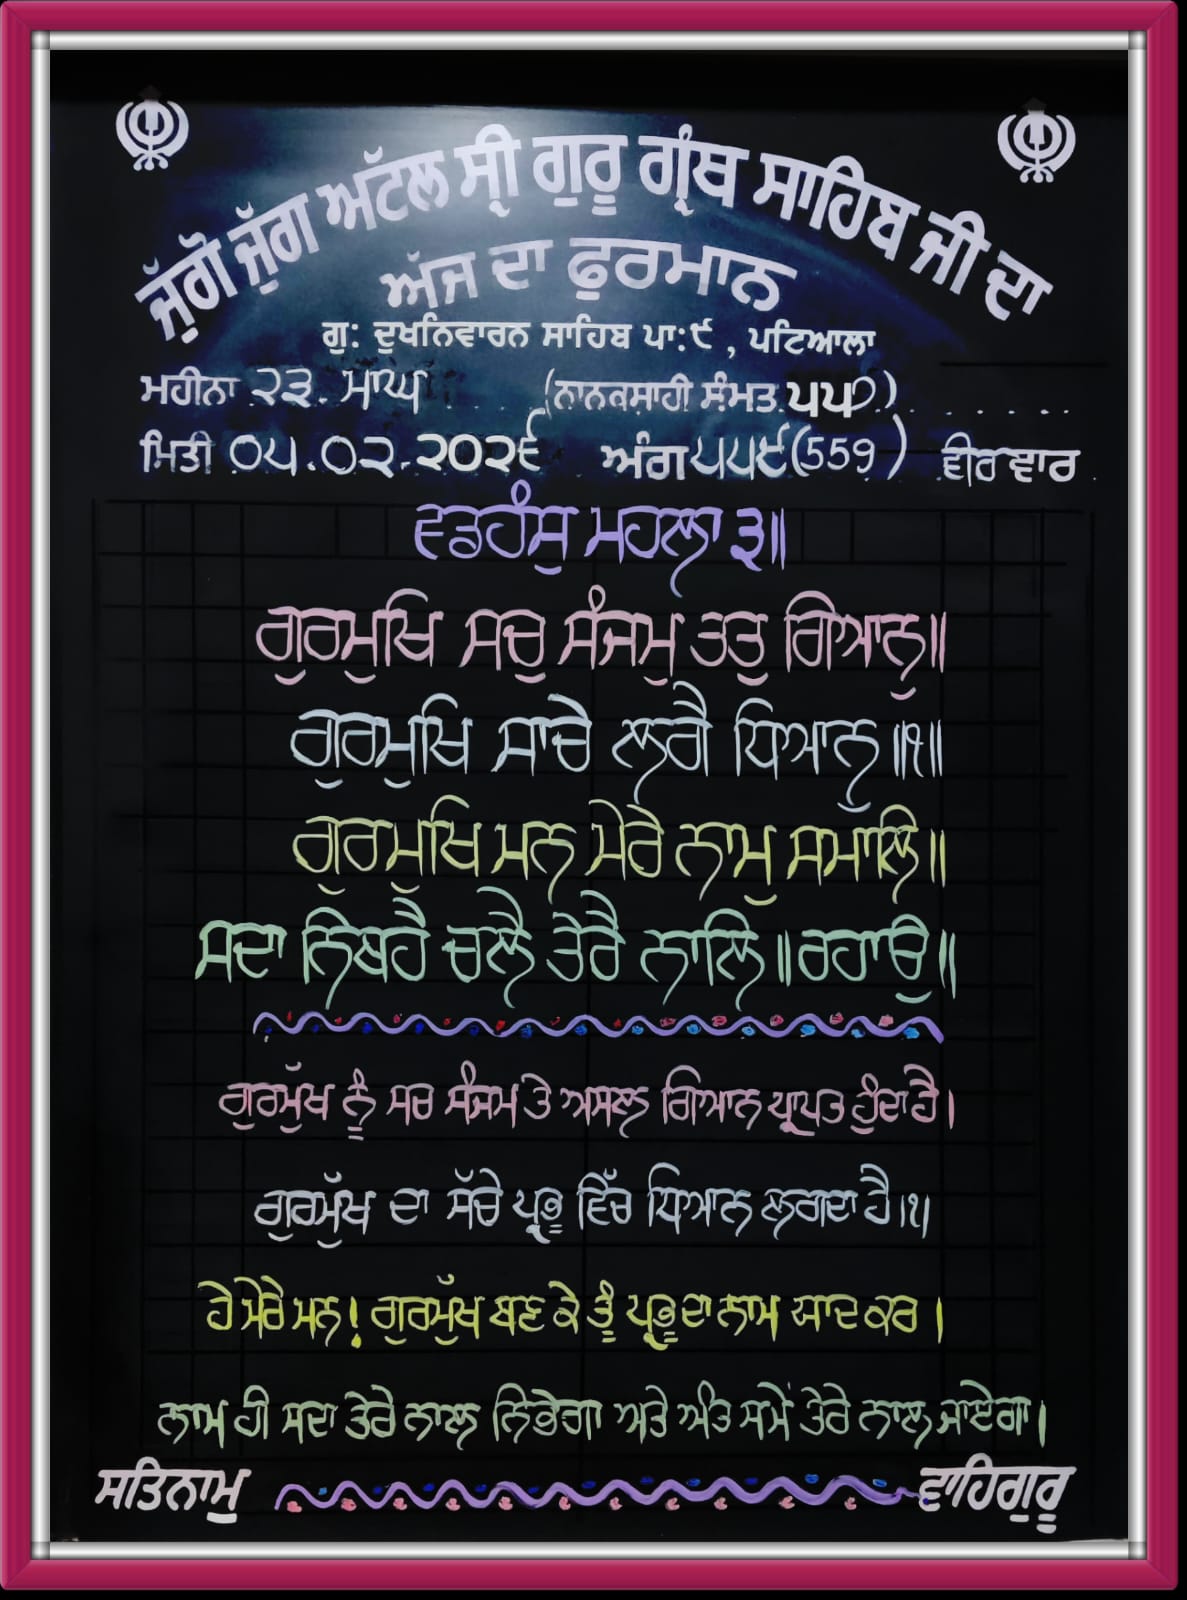 ਜੁੱਗੋ ਜੁੱਗ ਅਟੱਲ ਸ੍ਰੀ ਗੁਰੂ ਗ੍ਰੰਥ ਸਾਹਿਬ ਜੀ ਦਾ
ਅੱਜ ਦਾ ਫੁਰਮਾਨ
ਗੁ: ਦੁਖਨਿਵਾਰਨ ਸਾਹਿਬ ਪਾ:੯ , ਪਟਿਆਲਾ
ਮਹੀਨਾ ੨੩. ਮਾਘ (ਨਾਨਕਸਾਹੀ ਸੰਮਤ ੫੫੭)
ਮਿਤੀ ੦੫.੦੨.੨੦੨੬ ਅੰਗ ੫੫੯(559) ਵੀਰ ਵਾਰ
ਵਡਹੰਸੁ ਮਹਲਾ ੩॥
ਗੁਰਮੁਖਿ ਸਚੁ ਸੰਜਮੁ ਤਤੁ ਗਿਆਨੁ॥
ਗੁਰਮੁਖਿ ਸਾਚੇ ਲਗੈ ਧਿਆਨੁ॥੧॥
ਗੁਰਮੁਖਿ ਮਨ ਮੇਰੇ ਨਾਮੁ ਸਮਾਲਿ॥
ਸਦਾ ਨਿਬਹੈ ਚਲੈ ਤੇਰੈ ਨਾਲਿ॥ਰਹਾਉ॥
ਗੁਰਮੁੱਖ ਨੂੰ ਸਚ ਸੰਜਮ ਤੇ ਅਸਲ ਗਿਆਨ ਪ੍ਰਾਪਤ ਹੁੰਦਾ ਹੈ।
ਗੁਰਮੁੱਖ ਦਾ ਸੱਚੇ ਪ੍ਰਭੂ ਵਿੱਚ ਧਿਆਨ ਲਗਦਾ ਹੈ।੧।
ਹੇ ਮੇਰੇ ਮਨ! ਗੁਰਮੁੱਖ ਬਣ ਕੇ ਤੂੰ ਪ੍ਰਭੂ ਦਾ ਨਾਮ ਯਾਦ ਕਰ।
ਨਾਮ ਹੀ ਸਦਾ ਤੇਰੇ ਨਾਲ ਨਿਭੇਗਾ ਅਤੇ ਅੰਤ ਸਮੇਂ ਤੇਰੇ ਨਾਲ ਜਾਏਗਾ।
ਸਤਿਨਾਮੁ ਵਾਹਿਗੁਰੂ